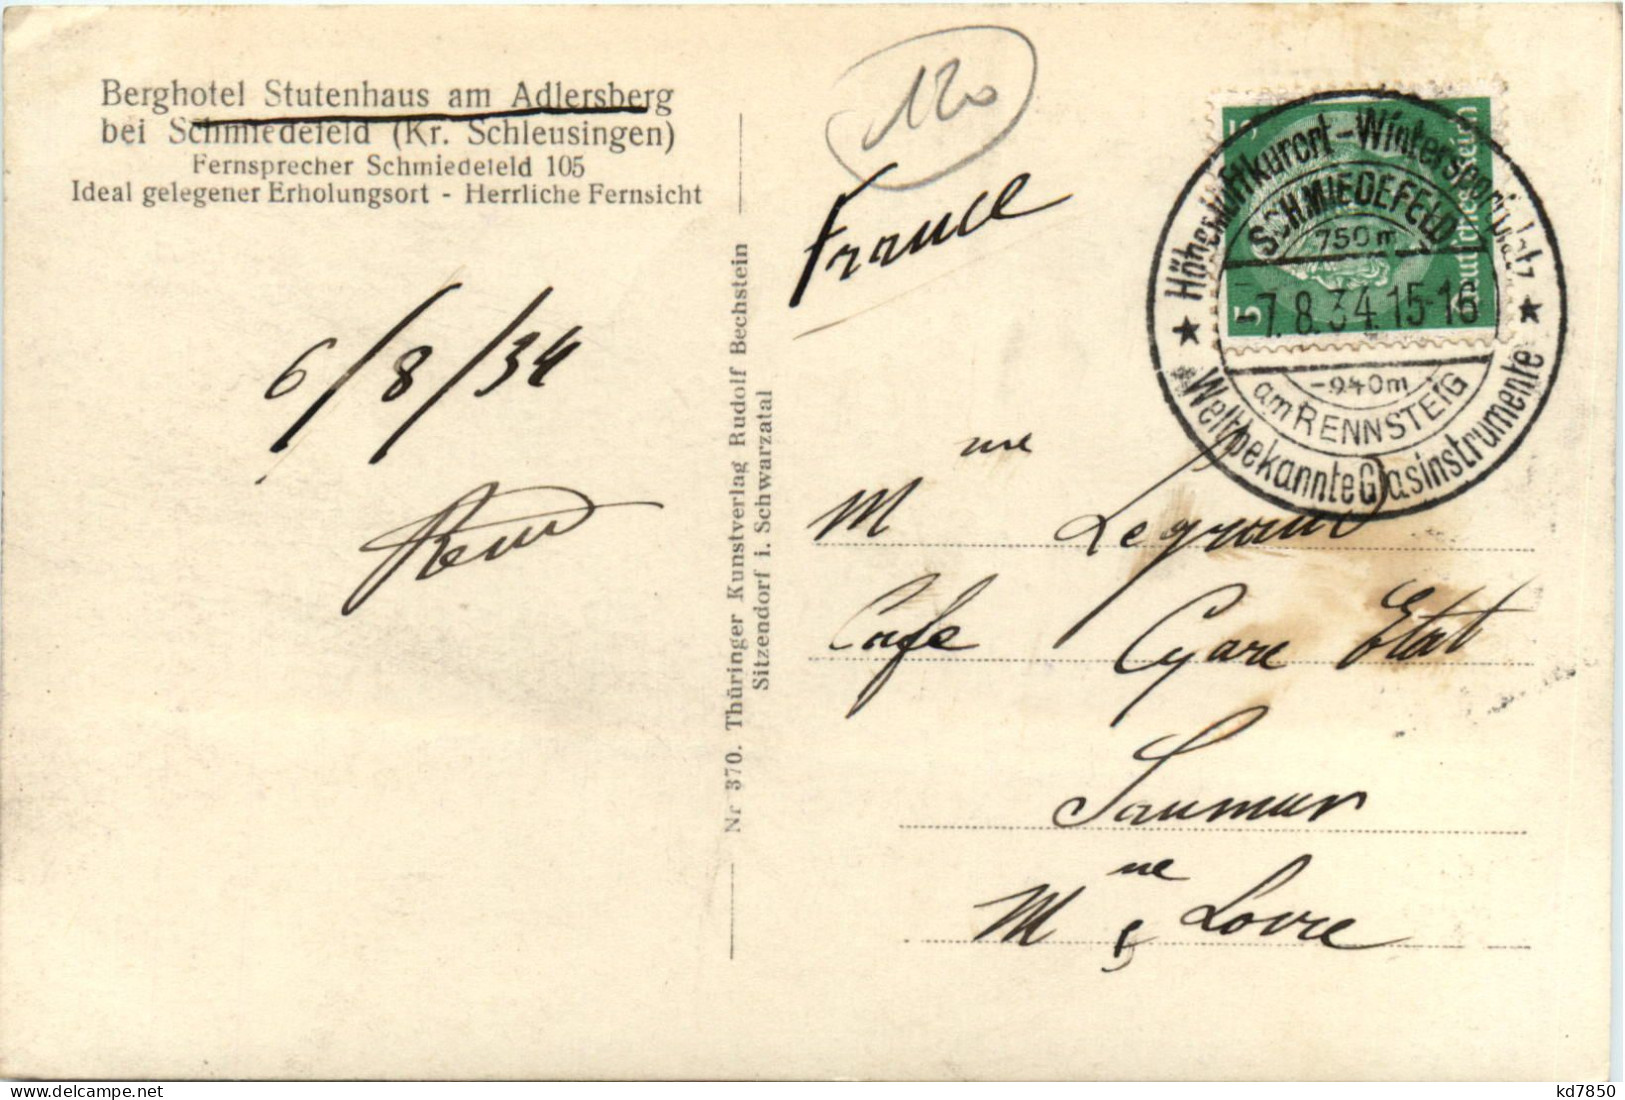 Berghotel Stutenhaus am Adlersberg
bei Schmiedefeld (Kr. Schleusingen)
Fernsprecher Schmiedefeld 105
Ideal gelegener Erholungsort - Herrliche Fernsicht
120
France
Höhenluftkurort-Wintersportplatz
SCHMIEDEFELD
750m
-7.8.34.15-16
-940m
am RENNSTEIG
Weltbekannte Glasinstrumente
5 5
Deutsches Reich
6/8/34
Nr 370. Thüringer Kunstverlag Rudolf Bechstein
Sitzendorf i. Schwarzatal
Mme Legrand
Cafe Gare Etat
Saumur
M ne & Loire
kd7850